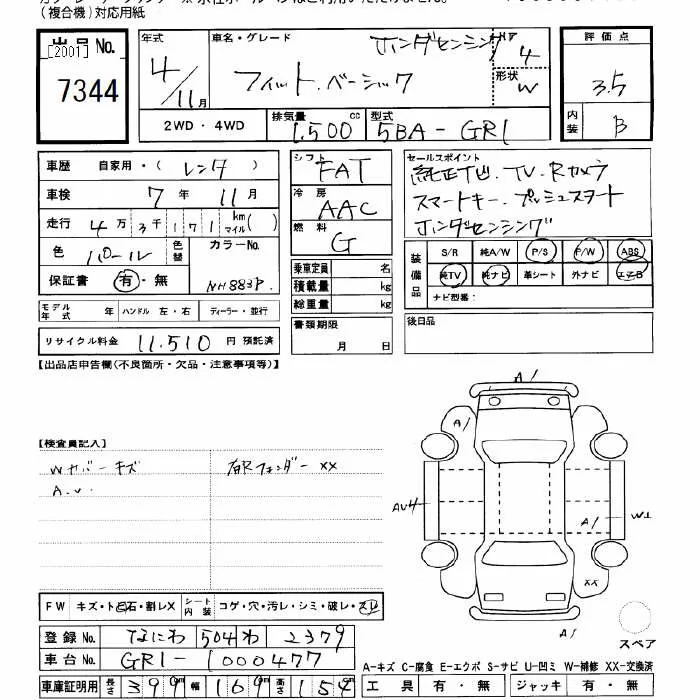 (複合機)対応用紙
出品No.
[2001]
7344
年式 車名・グレード ドア 評価点
4/11月 フィット.ベーシック ホンダセンシング 4 3.5
形状 W
2WD・4WD 排気量 1,500 cc 型式 5BA-GR1 内装 B
車歴 自家用・(レンタ)
車検 7年 11月
走行 4万3千171 km マイル( )
色 パール 色替 カラーNo. NH883P.
保証書 有・無
モデル年式 年 ハンドル 左・右 ディーラー・並行
リサイクル料金 11,510円 預託済
シフト FAT
冷房 AAC
燃料 G
乗車定員 名
積載量 kg
総重量 kg
書類期限
月 日
セールスポイント
純正ナビ.TV.Rカメラ
スマートキー.プッシュスタート
ホンダセンシング
装備品 S/R 純A/W P/S P/W ABS
純TV 純ナビ 革シート 外ナビ エアB
ナビ型番:
後日品
【出品店申告欄(不良箇所・欠品・注意事項等)】
【検査員記入】
Wカバーキズ 右Rフェンダー XX
A.U.
A1
A1
AU4
A1
W1
XX
A1
スペア
FW キズ・トビ石・割レX シート内装 コゲ・穴・汚レ・シミ・破レ・スレ
登録No. なにわ 504 わ 2379
車台No. GR1-1000477
車庫証明用 長さ 399 幅 169 高さ 154
A-キズ C-腐食 E-エクボ S-サビ U-凹ミ W-補修 XX-交換済
工具 有・無 ジャッキ 有・無